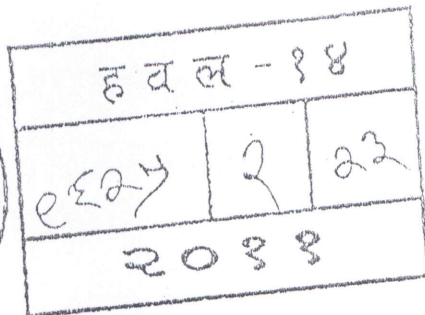 हवल - १४
९६२५ २ २३
२०११